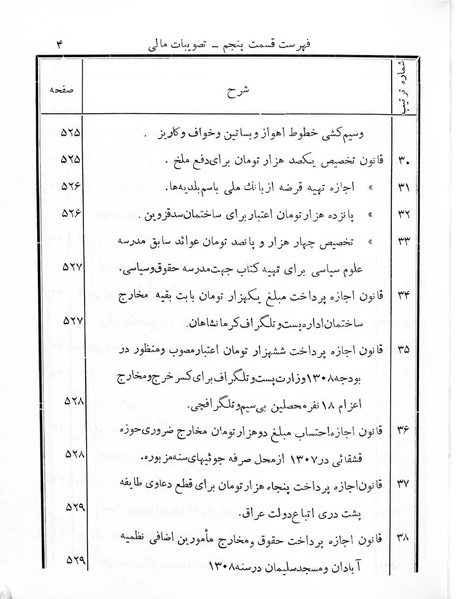 فهرست قسمت پنجم ــ تصویبات مالی ۴
شماره ترتیب شرح صفحه
وسیم‌کشی خطوط اهواز و بساتین وخواف وکاریز . ۵۲۵
۳۰ قانون تخصیص یکصد هزار تومان برای دفع ملخ . ۵۲۵
۳۱ » اجازه تهیه قرضه ازبانك ملی باسم بلدیه‌ها. ۵۲۶
۳۲ » پانزده هزار تومان اعتبار برای ساختمان سد قزوین . ۵۲۶
۳۳ » تخصیص چهار هزار و پانصد تومان عوائد سابق مدرسه
علوم سیاسی برای تهیه کتاب جهت مدرسه حقوق وسیاسی. ۵۲۷
۳۴ قانون اجازه پرداخت مبلغ یکهزار تومان بابت بقیه مخارج
ساختمان اداره پست و تلگراف کرمانشاهان. ۵۲۷
۳۵ قانون اجازه پرداخت ششهزار تومان اعتبار مصوب ومنظور در
بودجه ۱۳۰۸ وزارت پست و تلگراف برای کسر خرج ومخارج
اعزام ۱۸ نفر محصلین بی‌سیم و تلگرافچی. ۵۲۸
۳۶ قانون اجازه احتساب مبلغ دو هزار تومان مخارج ضروری حوزه
قشقائی در ۱۳۰۷ از محل صرفه جوئیهای سنه مزبوره. ۵۲۸
۳۷ قانون اجازه پرداخت پنجاه هزار تومان برای قطع دعاوی طایفه
پشت دری اتباع دولت عراق. ۵۲۹
۳۸ قانون اجازه پرداخت حقوق ومخارج مأمورین اضافی نظمیه
آبادان و مسجد سلیمان در سنه ۱۳۰۸ ۵۲۹